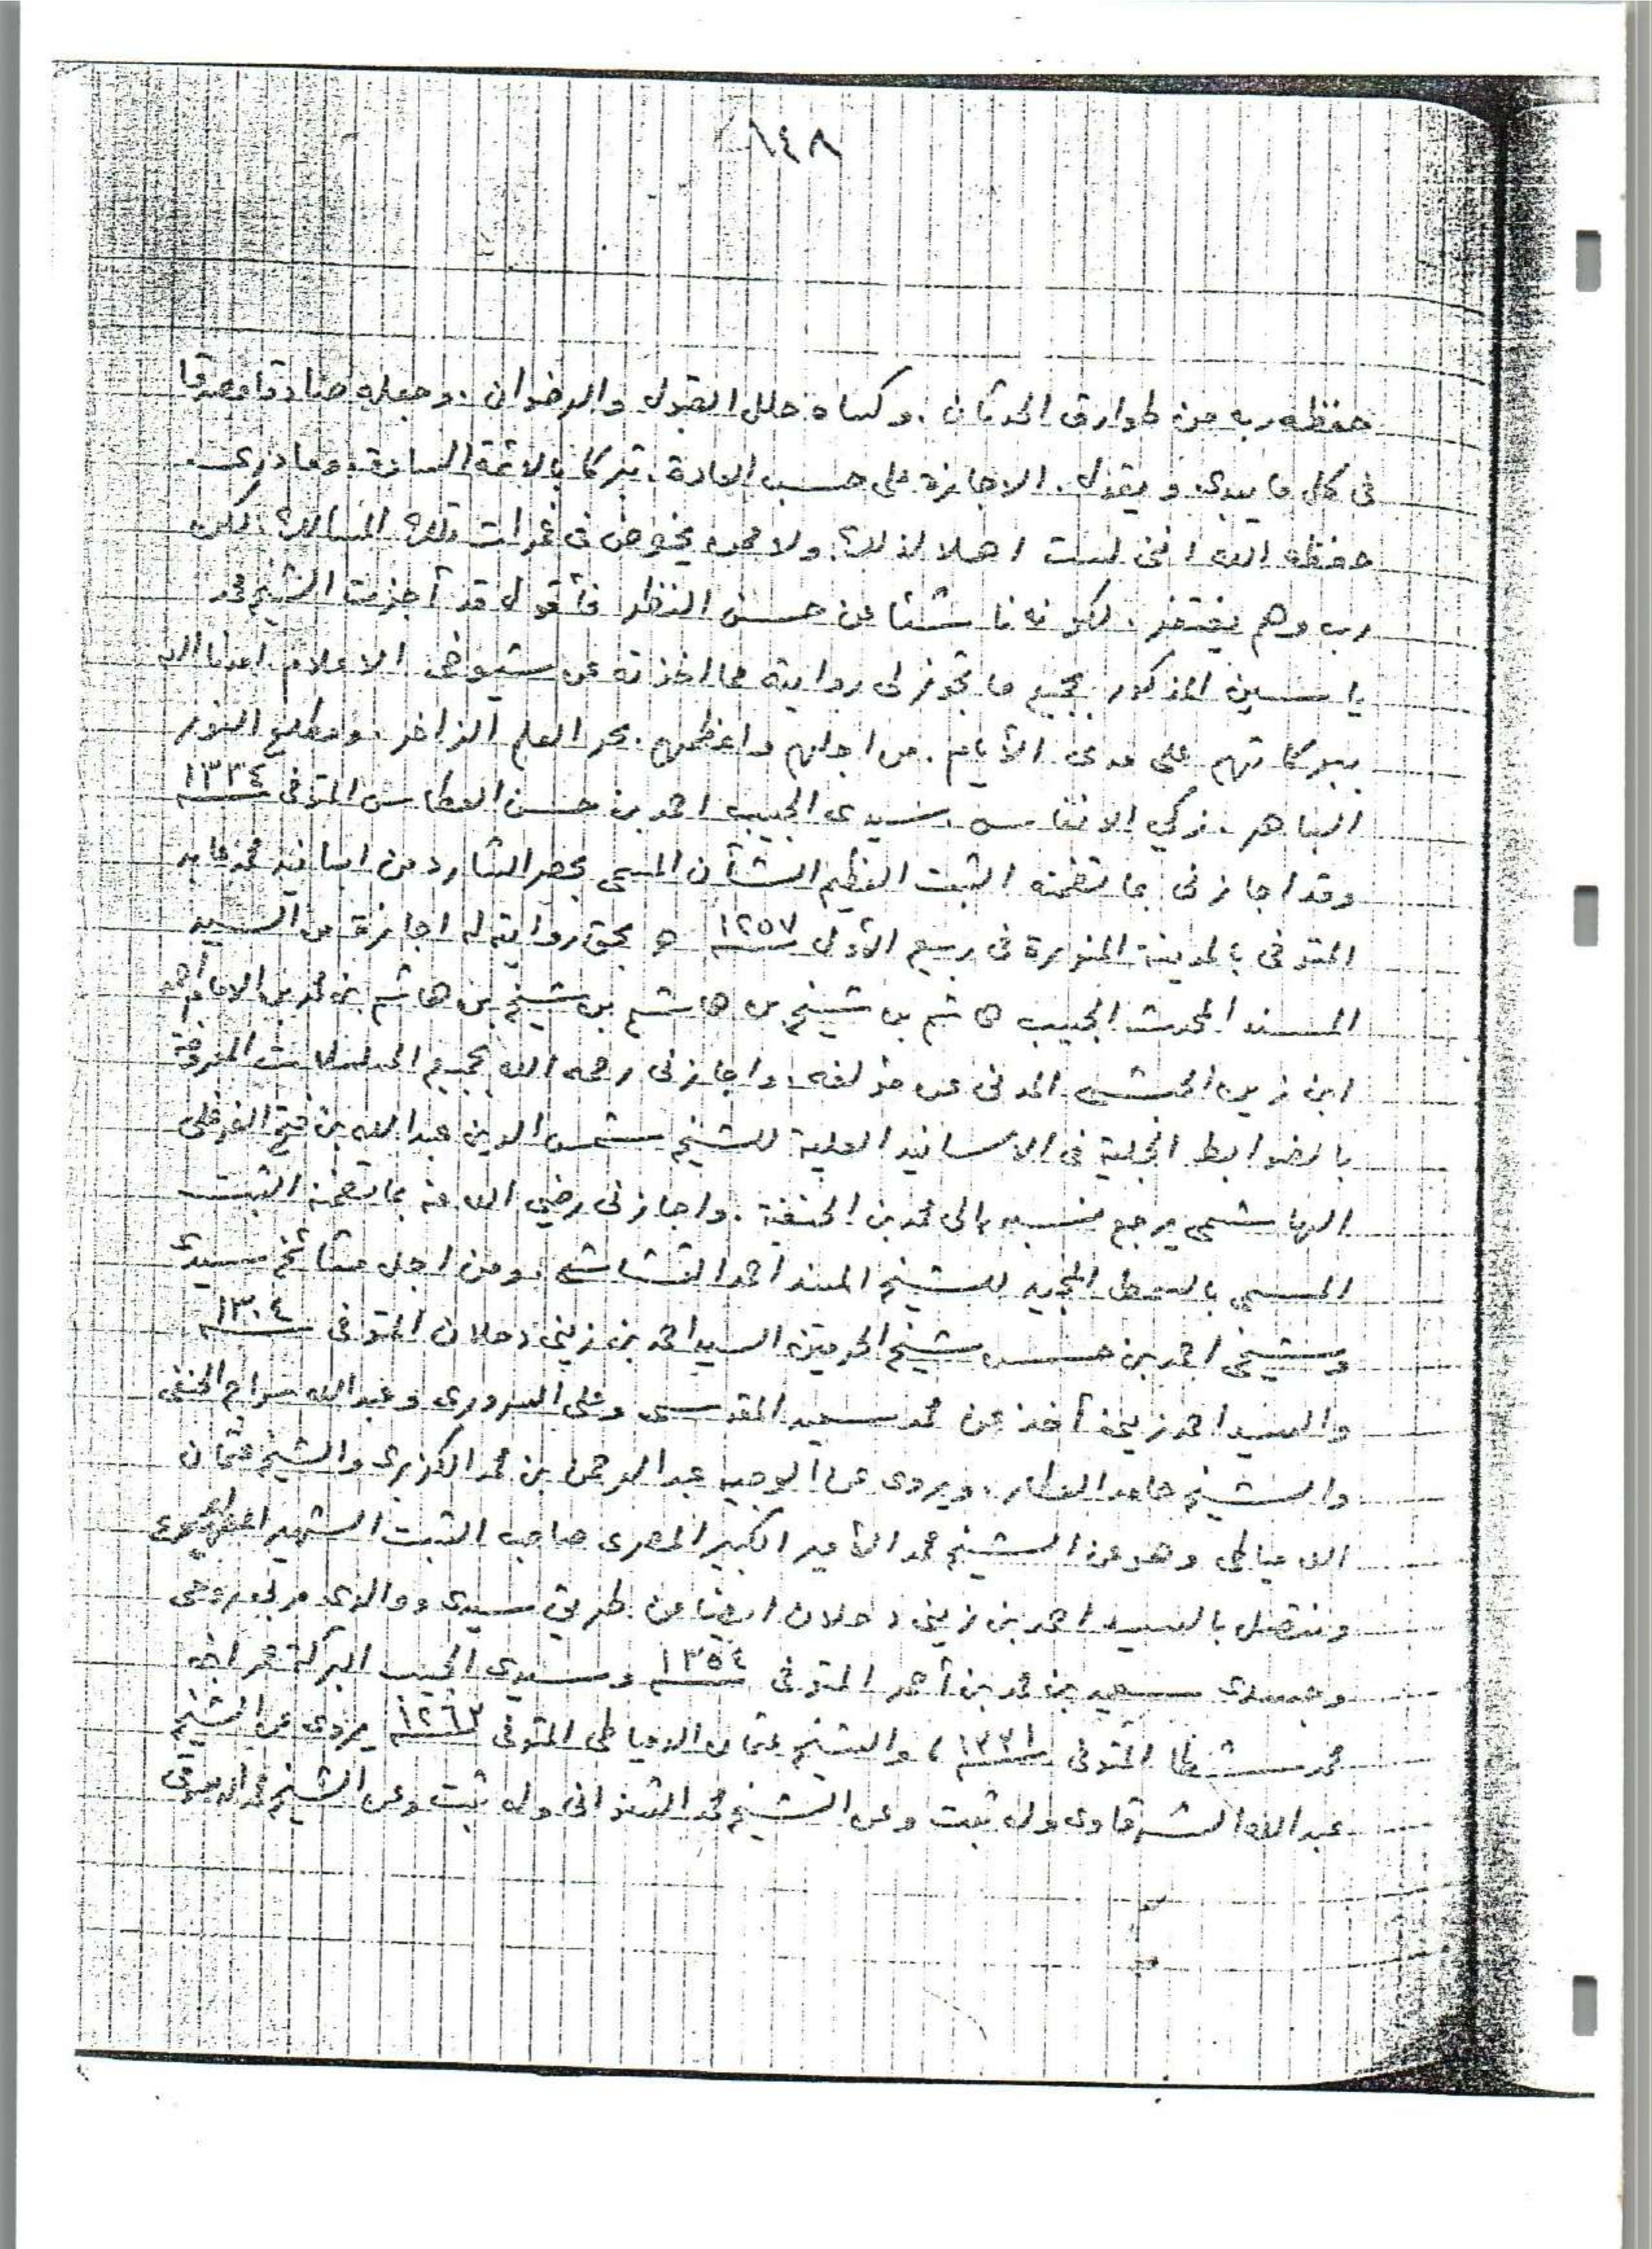 ١٤٨
حفظه ربه من طوارق الحدثان . وكساه حلل القبول والرضوان . وجعله صادقا مصدقا
فى كل ما يبدى ويقول . الاجازة على حسب العادة . تبركا بالائمة السادة . وما درى
حفظه الله انى لست اهلا لذلك ولا ممن يخوض فى غمرات تلك المسالك . لكن
رب وهم يغتفر . لكونه ناشئا عن حسن النظر فأقول قد أجزت الشيخ محمد
ياسين المذكور بجميع ما تجوز لى روايته مما اخذته عن شيوخى الاعلام امدنا الله
ببركاتهم على مدى الأيام . من اجلهم واعظمهم . بحر العلم الزاخر . ومطلع النور
الباهر . زكي الانفاس . سيدى الحبيب احمد بن حسن العطاس المتوفى ١٣٣٤
وقد اجازنى بما تضمنه الثبت العظيم الشأن المسمى بحصر الشارد من اسانيد محمد عابد
المتوفى بالمدينة المنورة فى ربيع الأول ١٢٥٧ ه بحق روايته له اجازة من السيد
المسند المحدث الحبيب هاشم بن شيخ بن هاشم بن شيخ بن هاشم بن محمد بن الامام أحمد
ابن زين الحبشى المدنى عن مؤلفه . واجازنى رحمه الله بجميع المسلسلات المعروفة
بالضوابط الجلية فى الاسانيد العلية للشيخ شمس الدين عبد الله بن فتح الفرغلى
الهاشمى يرجع نسبه الى محمد بن الحنفية . واجازنى رضي الله عنه بما تضمنه الثبت
المسمى بالسمط المجيد للشيخ المسند احمد القشاشى . ومن اجل مشائخ سيدى
وشيخى احمد بن حسن شيخ الحرمين السيد احمد بن زينى دحلان المتوفى ١٣٠٤
والسيد احمد زينى أخذ عن محمد سعيد المقدسى وعلى السرورى وعبد الله سراج الحنفى
والشيخ حامد العطار . ويروى عن الوجيه عبد الرحمن بن محمد الكزبرى والشيخ عثمان
الدمياطى وهو عن الشيخ محمد الأمير الكبير المصرى صاحب الثبت الشهير
ونتصل بالسيد احمد بن زينى دحلان ايضا من طريق سيدى ووالدى مربى روحى
وجسدى سعيد بن محمد بن أحمد المتوفى ١٣٥٤ وسيدى الحبيب البركة عمر ابن
محمد شطا المتوفى ١٣٣١ ، والشيخ عثمان الدمياطى المتوفى ١٢٦٣ يروى عن الشيخ
عبد الله الشرقاوى وله ثبت وعن الشيخ محمد الشنوانى وله ثبت وعن الشيخ محمد الدسوقى